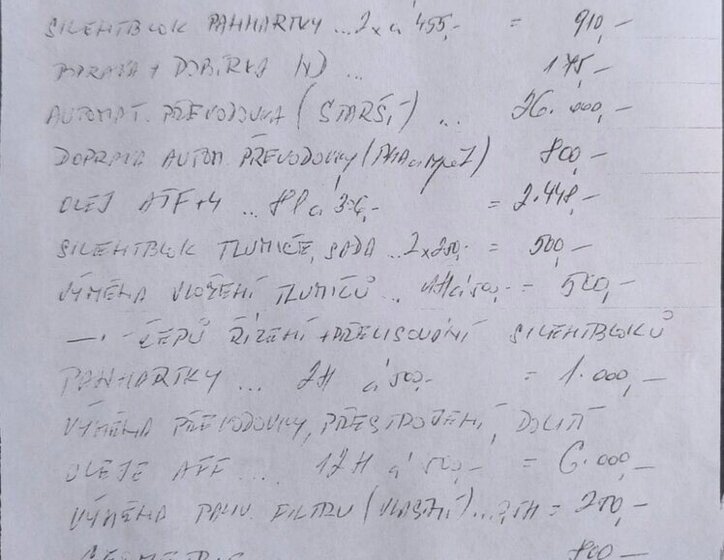 SILENTBLOK PANHARTKY ... 2x á 455,- = 910,-
DOPRAVA + DOBÍRKA ... 175,-
AUTOMAT. PŘEVODOVKA (STARŠÍ) ... 26.000,-
DOPRAVA AUTOM. PŘEVODOVKY ( 800,-
OLEJ ATF+4 ... 8l á 306,- = 2.448,-
SILENTBLOK TLUMIČE, SADA ... 2x250,- = 500,-
VÝMĚNA ULOŽENÍ TLUMIČŮ .. 1H á 500,- = 500,-
— ČEPŮ ŘÍZENÍ + PŘELISOVÁNÍ SILENTBLOKŮ
PANHARTKY ... 2H á 500,- = 1.000,-
VÝMĚNA PŘEVODOVKY, PŘESTROJENÍ, DOLITÍ
OLEJE ATF .... 12H á 500,- = 6.000,-
VÝMĚNA PALIV. FILTRU (VLASTNÍ) ... = 250,-
GEOMETRIE 800,-